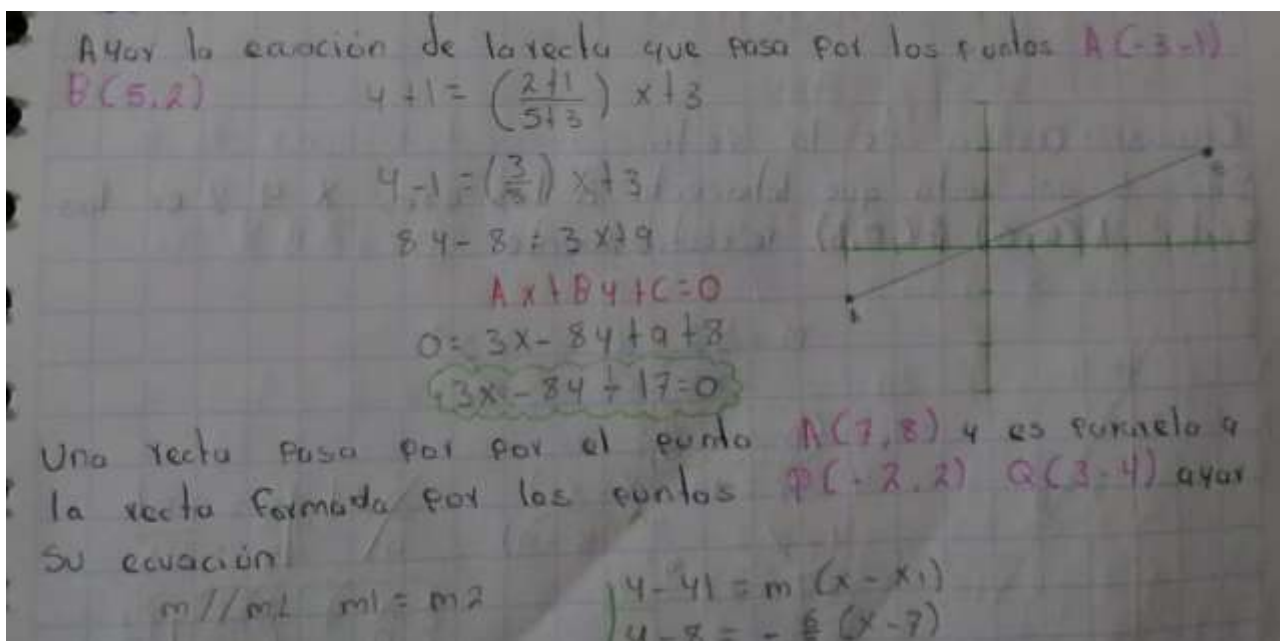 Ayar la ecuación de la recta que pasa por los puntos A(-3-1)
B(5,2)
y+1=(2+1/5+3) x+3
y-1=(3/8) x+3
8y-8=3x+9
Ax+By+C=0
0=3x-8y+9+8
3x-8y+17=0
A
B
Una recta pasa por por el punto A(7,8) y es paralelo a
la recta formada por los puntos P(-2,2) Q(3-4) ayar
Su ecuación
m//m2 m1=m2
y-y1=m(x-x1)
y-8=-6 (x-7)